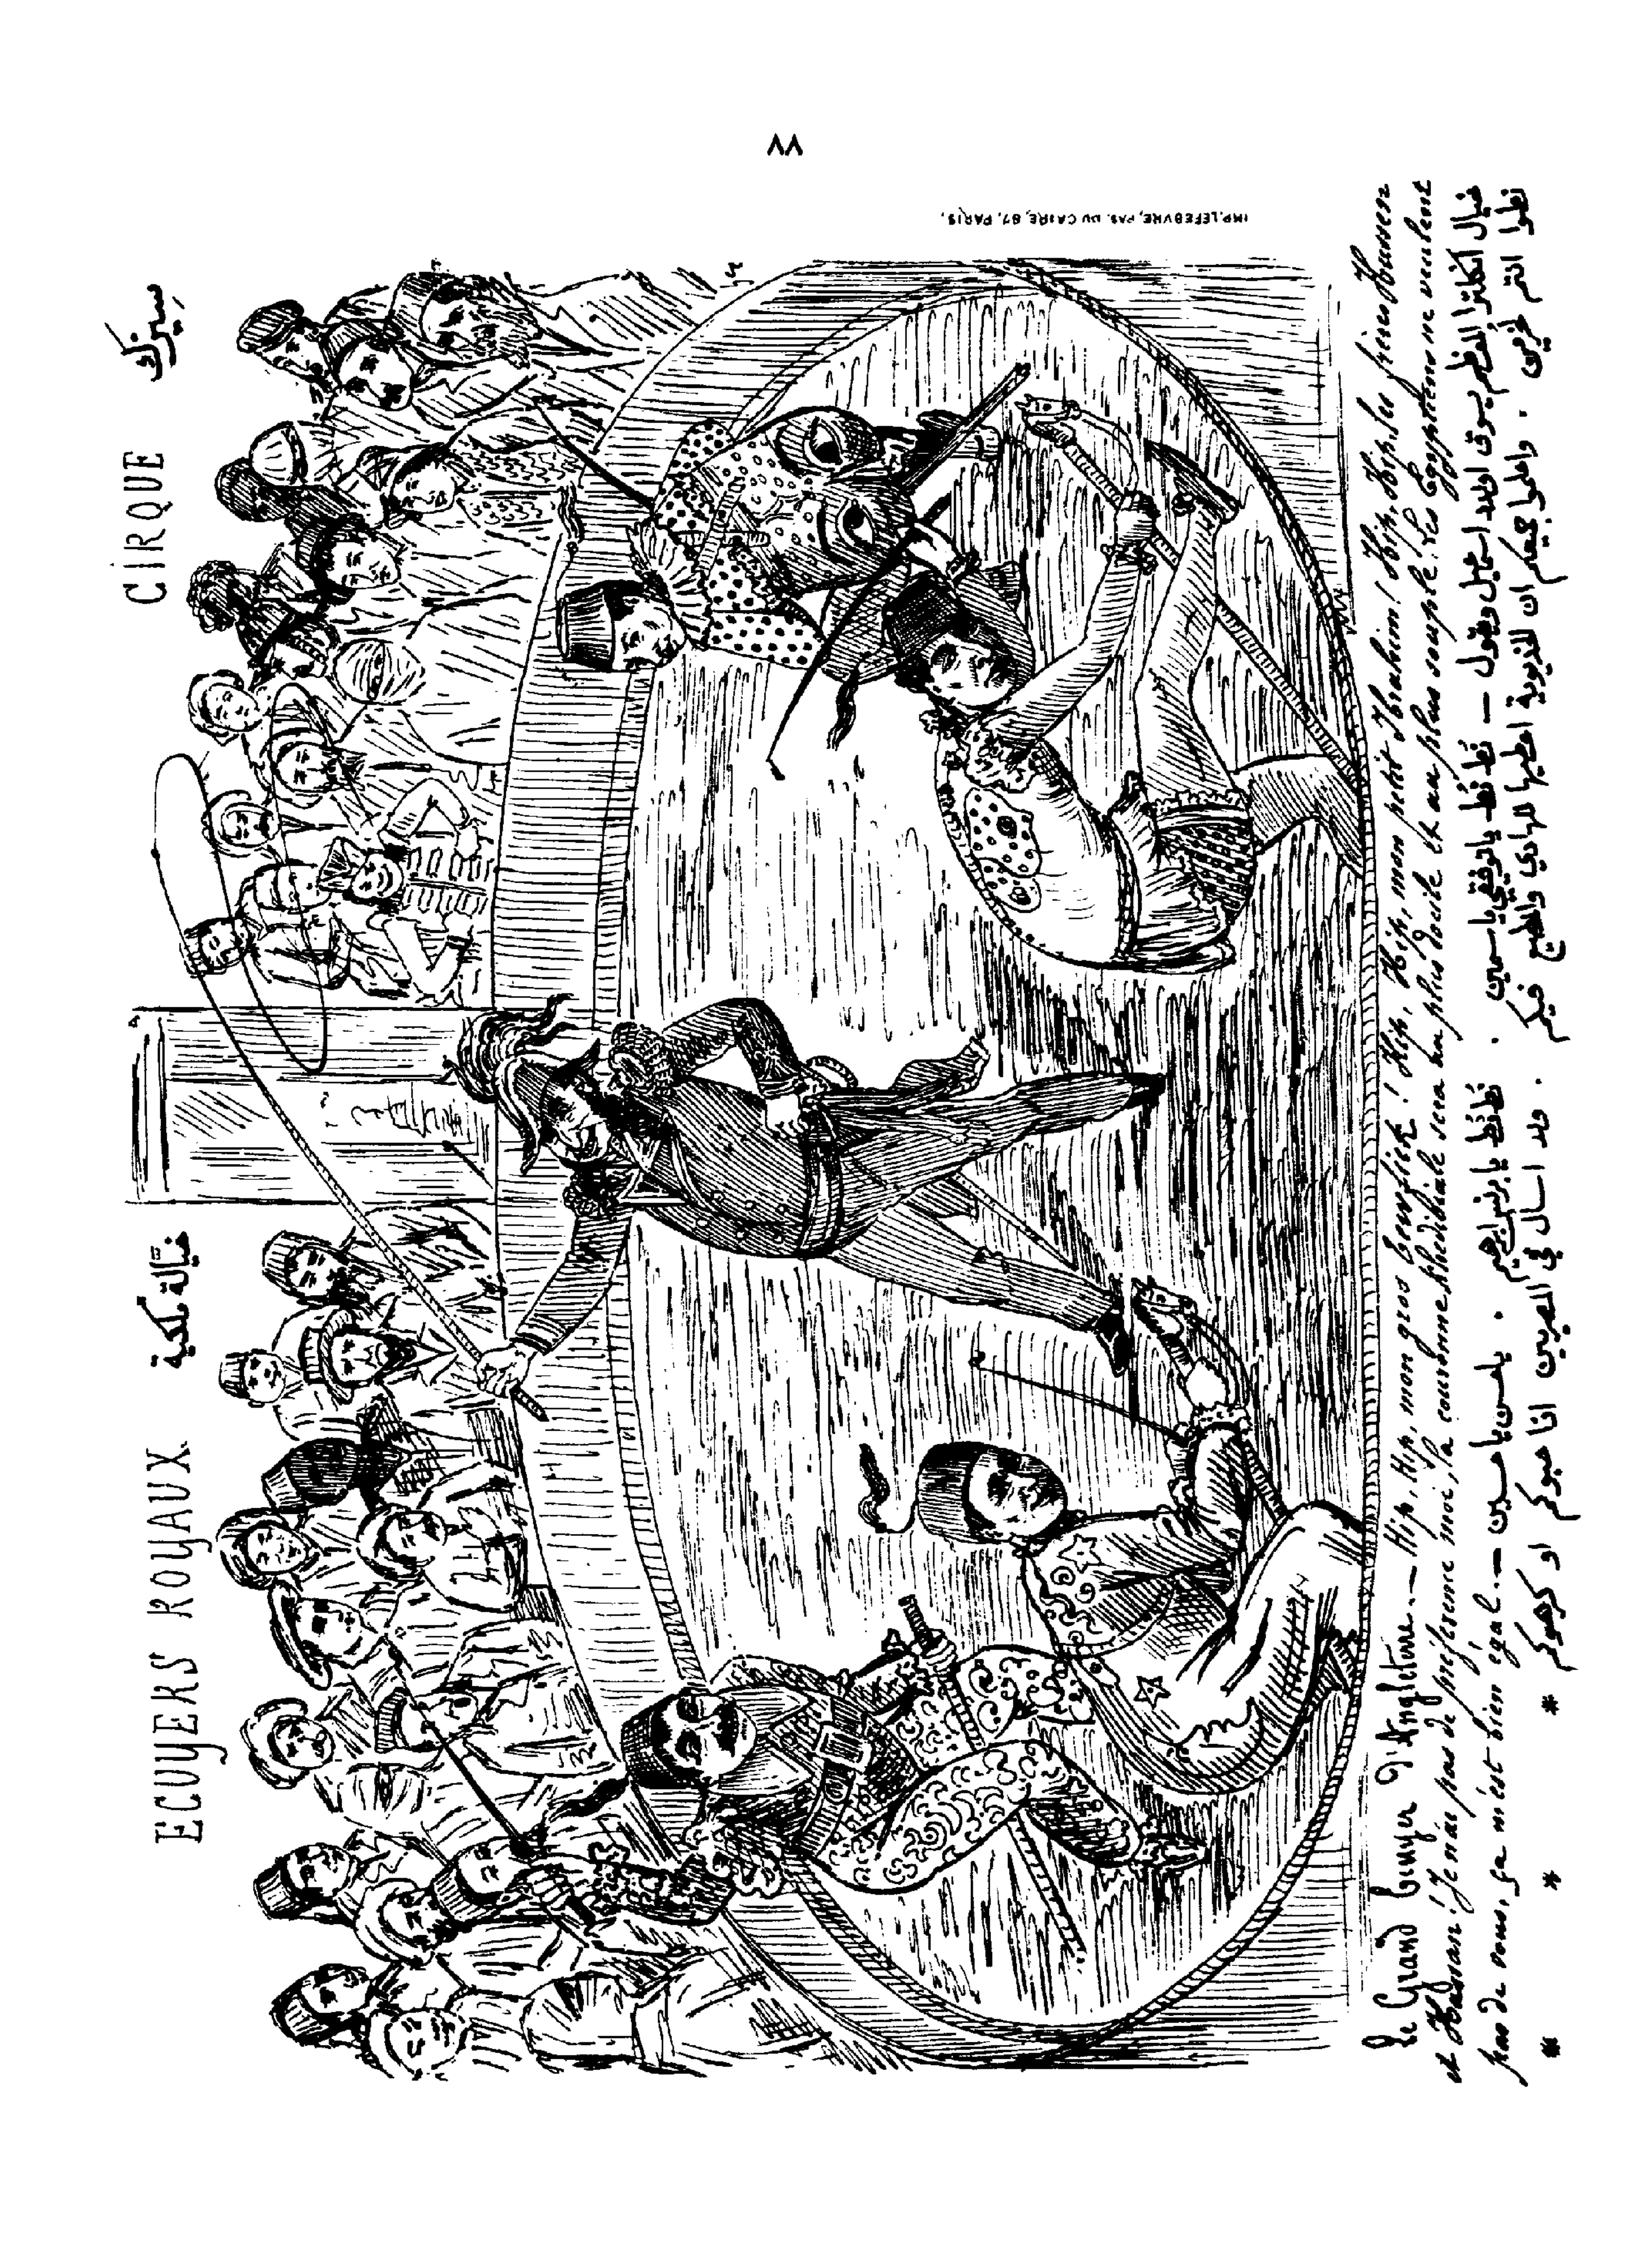 ٨٨
ECUYERS ROYAUX خيالة ملكية CIRQUE سيرك
IMP. LEFEBVRE, PAS. DU CAIRE, 87, PARIS.
Le Grand Ecuyer d'Angleterre. — Hip, Hip, mon gros Tewfick! Hip, Hip, mon petit Ibrahim! Hip, Hip, les frères Hussen
et Hassan! Je n'ai pas de préférence moi, la couronne khédiviale sera au plus docile et au plus souple. Les Egyptiens ne veulent
pas de vous, ça m'est bien égal. —
خيال انكلترا يسوق اولاد اسماعيل ويقول — نط نط يا توفيقي يا سمين . نط نط يا برنس ابراهيم . يا حسن يا حسين —
نطوا انتم . واعلموا جميعكم ان الخديوية اعطيها للهادي والمطيع فيكم . ولا اسأل في المصريين اذا حبوكم او كرهوكم * * *